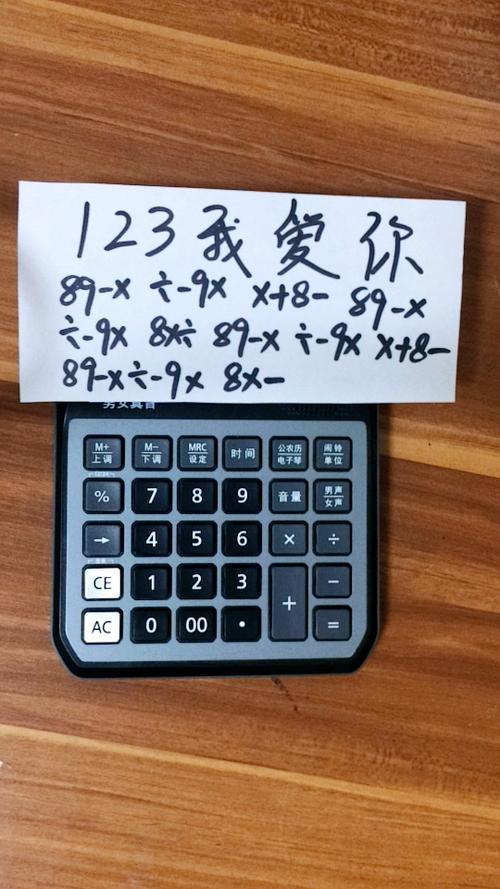 123我爱你
89-× ÷-9× ×+8- 89-×
÷-9× 8×÷ 89-× ÷-9× ×+8-
89-×÷-9× 8×-
男女真音
M+ 上调 M- 下调 MRC 设定 时间 公农历 电子琴 闹铃 单位
% 7 8 9 音量 男声 女声
→ 4 5 6 × ÷
CE 1 2 3 + -
AC 0 00 · =